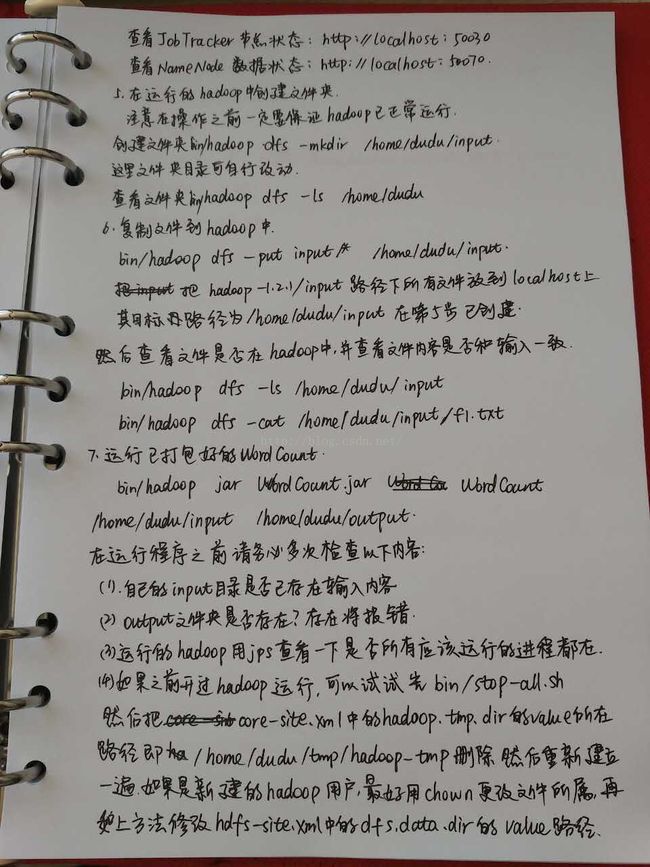 查看JobTracker 节点状态: http://localhost:50030
查看NameNode 数据状态: http://localhost:50070.
5. 在运行的hadoop中创建文件夹.
注意在操作之前一定要保证hadoop已正常运行.
创建文件夹bin/hadoop dfs -mkdir /home/dudu/input.
这里文件夹目录可自行改动.
查看文件夹bin/hadoop dfs -ls /home/dudu
6. 复制文件到hadoop中.
bin/hadoop dfs -put input/* /home/dudu/input.
把input 把 hadoop-1.2.1/input 路径下所有文件放到localhost上
其目标路径为/home/dudu/input 在第5步已创建.
然后查看文件是否在hadoop中,并查看文件内容是否和输入一致.
bin/hadoop dfs -ls /home/dudu/input
bin/hadoop dfs -cat /home/dudu/input/f1.txt
http://blog.csdn.net/
7. 运行已打包好的WordCount.
bin/hadoop jar WordCount.jar Word Cou WordCount
/home/dudu/input /home/dudu/output.
在运行程序之前请务必多次检查以下内容:
(1). 自己的input目录是否已存在输入内容
(2) output文件夹是否存在? 存在将报错.
(3) 运行的hadoop用jps查看一下是否所有应该运行的进程都在.
(4) 如果之前开过hadoop运行, 可以试试先 bin/stop-all.sh
然后把core-sit core-site.xml中的hadoop.tmp.dir的value所在
路径即 /home/dudu/tmp/hadoop-tmp 删除 然后重新建立
一遍. 如果是新建的hadoop用户, 最好用chown更改文件所属, 再
如上方法修改hdfs-site.xml中的dfs.data.dir的value路径.